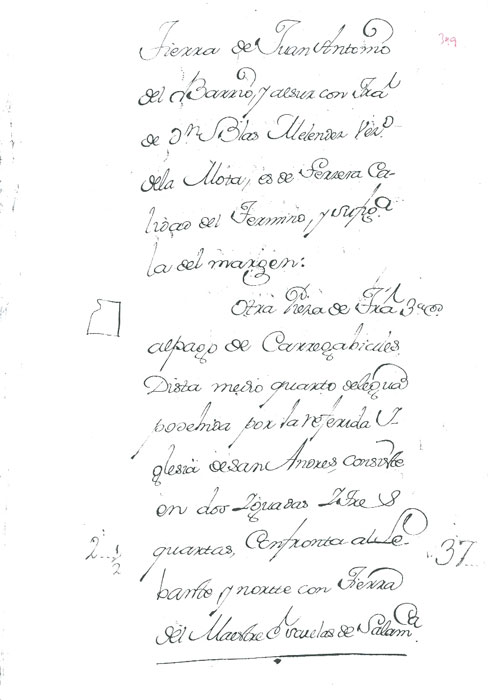 309
Tierra de Juan Antonio
del Barrio, y alsur con Tra.l
de D.n Blas Melendez Vez.o
dela Mota, es de Terzera Ca-
lidad del Termino, y su fig.a
la del margen:
Otra Pieza de Tra.l
al pago de Carregabiches
Dista medio quarto delegua
posehida por la referida Y-
glesia desan Andres, consiste
en dos Yguadas Y tre s
quartas, Confronta al Le-
2 1/2
37
bante y norte con Tierra
del Escuelas de Salam.ca